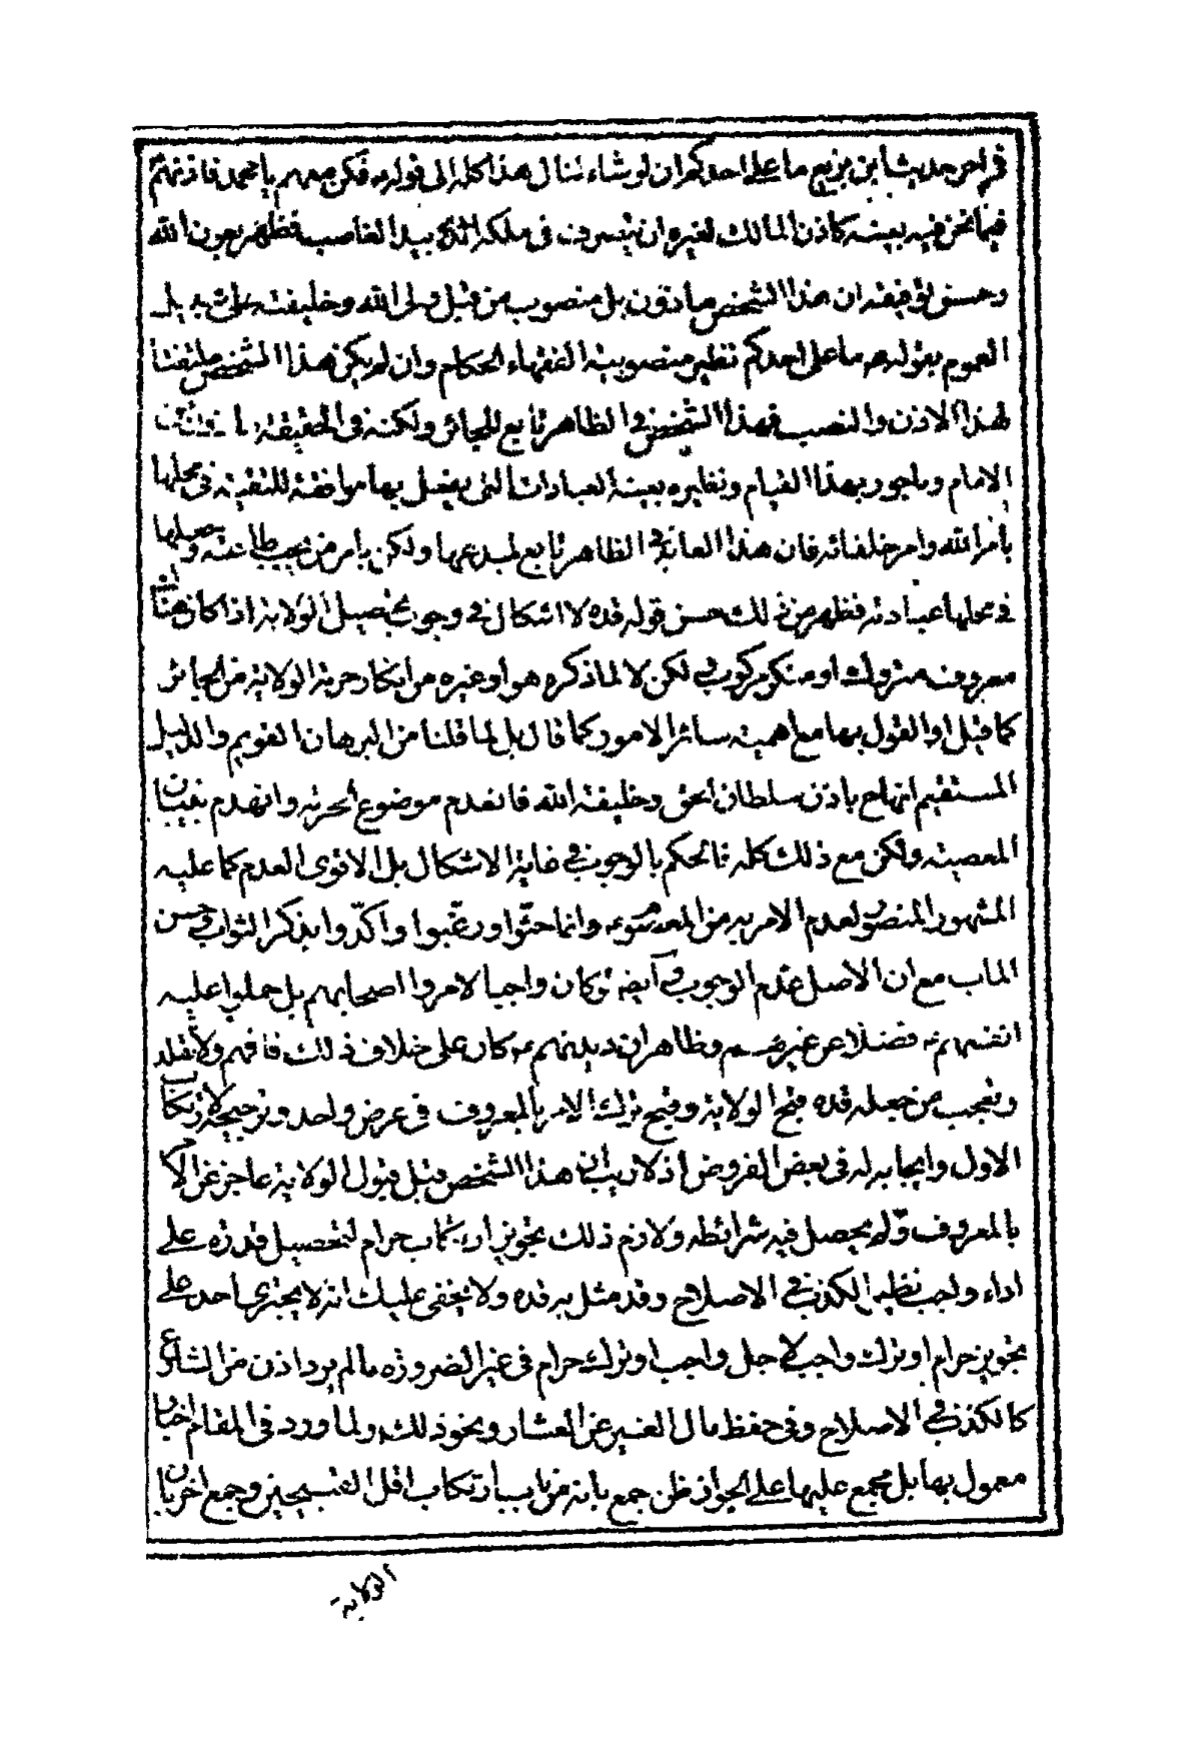 في اخر حديث ابن بزيع ما على احدكم ان لو شاء لنال هذا كله الى قوله فكن معهم يا محمد فاذنهم
فيما نحن فيه بعينه كاذن المالك لغيره ان يتصرف في ملكه الذي بيد الغاصب فظهر بعون الله
وحسن توفيقه ان هذا الشخص ماذون بل منصوب من قبل ولى الله وخليفته على سبيل
العموم بقولهم ما على احدكم نظير منصوبية الفقهاء الحكام وان لم يكن هذا الشخص ملتفتا
لهذا الاذن والنصب فهذا الشخص في الظاهر تابع للجائر ولكنه في الحقيقة
الامام وماجور بهذا القيام ونظيره بعينه العبادات التي يعمل بها موافقة للتقية في محلها
بامر الله وامر خلفائه فان هذا العابد في الظاهر تابع لمبدعها ولكن بامر من يجب طاعته
في محلها عبادته فظهر من ذلك حسن قوله قده لا اشكال في وجوب تحصيل الولاية اذا كان هناك
معروف متروك او منكر مركوب لكن لا لما ذكره هو او غيره من انكار حرمة الولاية من الجائر
كما قيل او القول بها مع اهمية سائر الامور كما قال بل لما قلنا من البرهان القويم والدليل
المستقيم انها ح باذن سلطان الحق وخليفة الله فانعدم موضوع الحرمة وانهدم بنيان
المعصية ولكن مع ذلك كله فالحكم بالوجوب في غاية الاشكال بل الاقوى العدم كما عليه
المشهور المنصور لعدم الامر به من المعصوم وانما حثوا ورغبوا واكدوا بذكر الثواب وحسن
الماب مع ان الاصل عدم الوجوب في ايضه لو كان واجبا لامروا اصحابهم بل حملوا عليه
انفسهم فضلا عن غيرهم وظاهر ان ديدنهم كان على خلاف ذلك فافهم ولا تقلد
وتعجب من جعله قده قبح الولاية وقبح ترك الامر بالمعروف في عرض واحد وترجيحه لارتكاب
الاول وايجابه له في بعض الفروض اذ لا ريب ان هذا الشخص قبل قبول الولاية عاجز عن الامر
بالمعروف ولم يحصل فيه شرائطه ولازم ذلك تجويز ارتكاب حرام لتحصيل قدرته على
اداء واجب نظير الكذب في الاصلاح وقد مثل به قده ولا يخفى عليك انه لا يجترى احد على
تجويز حرام او ترك واجب لاجل واجب او ترك حرام في غير الضرورة ما لم يرد اذن من الشارع
كالكذب في الاصلاح وفي حفظ مال الغير عن العشار ونحو ذلك ولما ورد في المقام اخبار
معمول بها بل مجمع عليها على الجواز ظن جمع بانه من باب ارتكاب اقل القبيحين وجمع اخر بان
الولاية